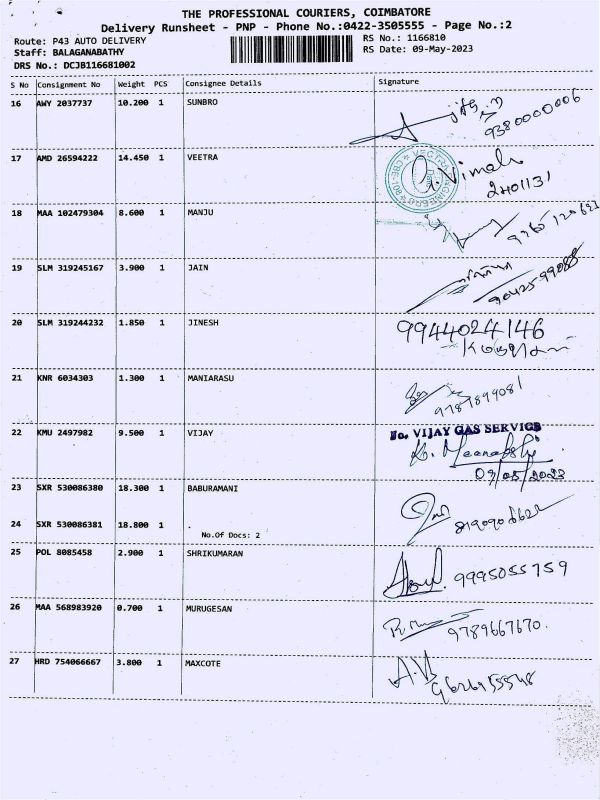 THE PROFESSIONAL COURIERS, COIMBATORE
Delivery Runsheet - PNP - Phone No.:0422-3505555 - Page No.:2
Route: P43 AUTO DELIVERY
RS No.: 1166810
Staff: BALAGANABATHY
RS Date: 09-May-2023
DRS No.: DCJB116681002
S No Consignment No Weight PCS Consignee Details Signature
16 AWY 2037737 10.200 1 SUNBRO
9380000006
17 AMD 26594222 14.450 1 VEETRA
Vimal
2401131
18 MAA 102479304 8.600 1 MANJU
19 SLM 319245167 3.900 1 JAIN
20 SLM 319244232 1.850 1 JINESH
9944024146
21 KNR 6034303 1.300 1 MANIARASU
9787899081
22 KMU 2497982 9.500 1 VIJAY
VIJAY GAS SERVICE
K. Meenakshi
09/05/2023
23 SXR 530086380 18.300 1 BABURAMANI
24 SXR 530086381 18.800 1
No.Of Docs: 2
25 POL 8085458 2.900 1 SHRIKUMARAN
9995055759
26 MAA 568983920 0.700 1 MURUGESAN
9789667670.
27 HRD 754066667 3.800 1 MAXCOTE